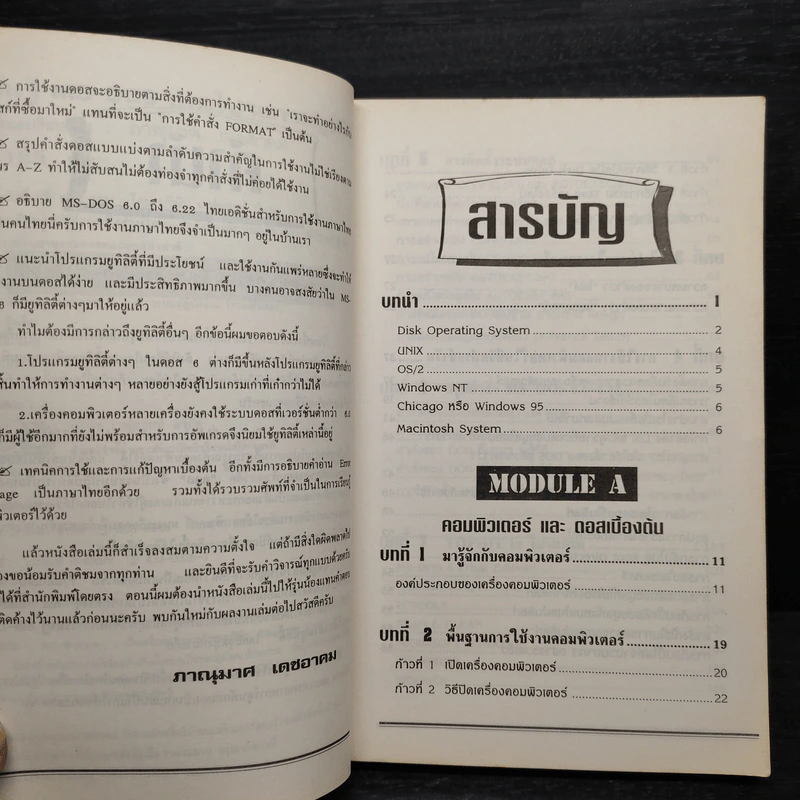 การใช้งานดอสจะอธิบายตามสิ่งที่ต้องการทำงาน เช่น "เราจะทำอย่างไรกับ
สก์ที่ซื้อมาใหม่" แทนที่จะเป็น "การใช้คำสั่ง FORMAT" เป็นต้น
สรุปคำสั่งดอสแบบแบ่งตามลำดับความสำคัญในการใช้งานไม่ใช่เรียงตาม
A-Z ทำให้ไม่สับสนไม่ต้องท่องจำทุกคำสั่งที่ไม่ค่อยได้ใช้งาน
อธิบาย MS-DOS 6.0 ถึง 6.22 ไทยเอดิชั่นสำหรับการใช้งานภาษาไทย
นคนไทยนี่ครับการใช้งานภาษาไทยจึงจำเป็นมากๆ อยู่ในบ้านเรา
แนะนำโปรแกรมยูทิลิตี้ที่มีประโยชน์ และใช้งานกันแพร่หลายซึ่งจะทำให้
งานบนดอสได้ง่าย และมีประสิทธิภาพมากขึ้น บางคนอาจสงสัยว่าใน MS-
6 ก็มียูทิลิตี้ต่างๆมาให้อยู่แล้ว
ทำไมต้องมีการกล่าวถึงยูทิลิตี้อื่นๆ อีกข้อนี้ผมขอตอบดังนี้
1.โปรแกรมยูทิลิตี้ต่างๆ ในดอส 6 ต่างก็มีขึ้นหลังโปรแกรมยูทิลิตี้ที่กล่าว
ทำให้การทำงานต่างๆ หลายอย่างยังสู้โปรแกรมเก่าที่เก๋ากว่าไม่ได้
2.เครื่องคอมพิวเตอร์หลายเครื่องยังคงใช้ระบบดอสที่เวอร์ชั่นต่ำกว่า 6.0
ก็มีผู้ใช้อีกมากที่ยังไม่พร้อมสำหรับการอัพเกรดจึงนิยมใช้ยูทิลิตี้เหล่านี้อยู่
เทคนิคการใช้และการแก้ปัญหาเบื้องต้น อีกทั้งมีการอธิบายคำอ่าน Error
age เป็นภาษาไทยอีกด้วย รวมทั้งได้รวบรวมศัพท์ที่จำเป็นในการเรียนรู้
พิวเตอร์ไว้ด้วย
แล้วหนังสือเล่มนี้ก็สำเร็จลงสมตามความตั้งใจ แต่ถ้ามีสิ่งใดผิดพลาดไป
องขอน้อมรับคำติชมจากทุกท่าน และยินดีที่จะรับคำวิจารณ์ทุกแบบด้วยครับ
ได้ที่สำนักพิมพ์โดยตรง ตอนนี้ผมต้องนำหนังสือเล่มนี้ไปให้รุ่นน้องแทนคำตอบ
ติดค้างไว้นานแล้วก่อนนะครับ พบกันใหม่กับผลงานเล่มต่อไปสวัสดีครับ
ภาณุมาศ เดชอาคม
สารบัญ
บทนำ 1
Disk Operating System 2
UNIX 4
OS/2 5
Windows NT 5
Chicago หรือ Windows 95 6
Macintosh System 6
MODULE A
คอมพิวเตอร์ และ ดอสเบื้องต้น
บทที่ 1 มารู้จักกับคอมพิวเตอร์ 11
องค์ประกอบของเครื่องคอมพิวเตอร์ 11
บทที่ 2 พื้นฐานการใช้งานคอมพิวเตอร์ 19
ก้าวที่ 1 เปิดเครื่องคอมพิวเตอร์ 20
ก้าวที่ 2 วิธีปิดเครื่องคอมพิวเตอร์ 22